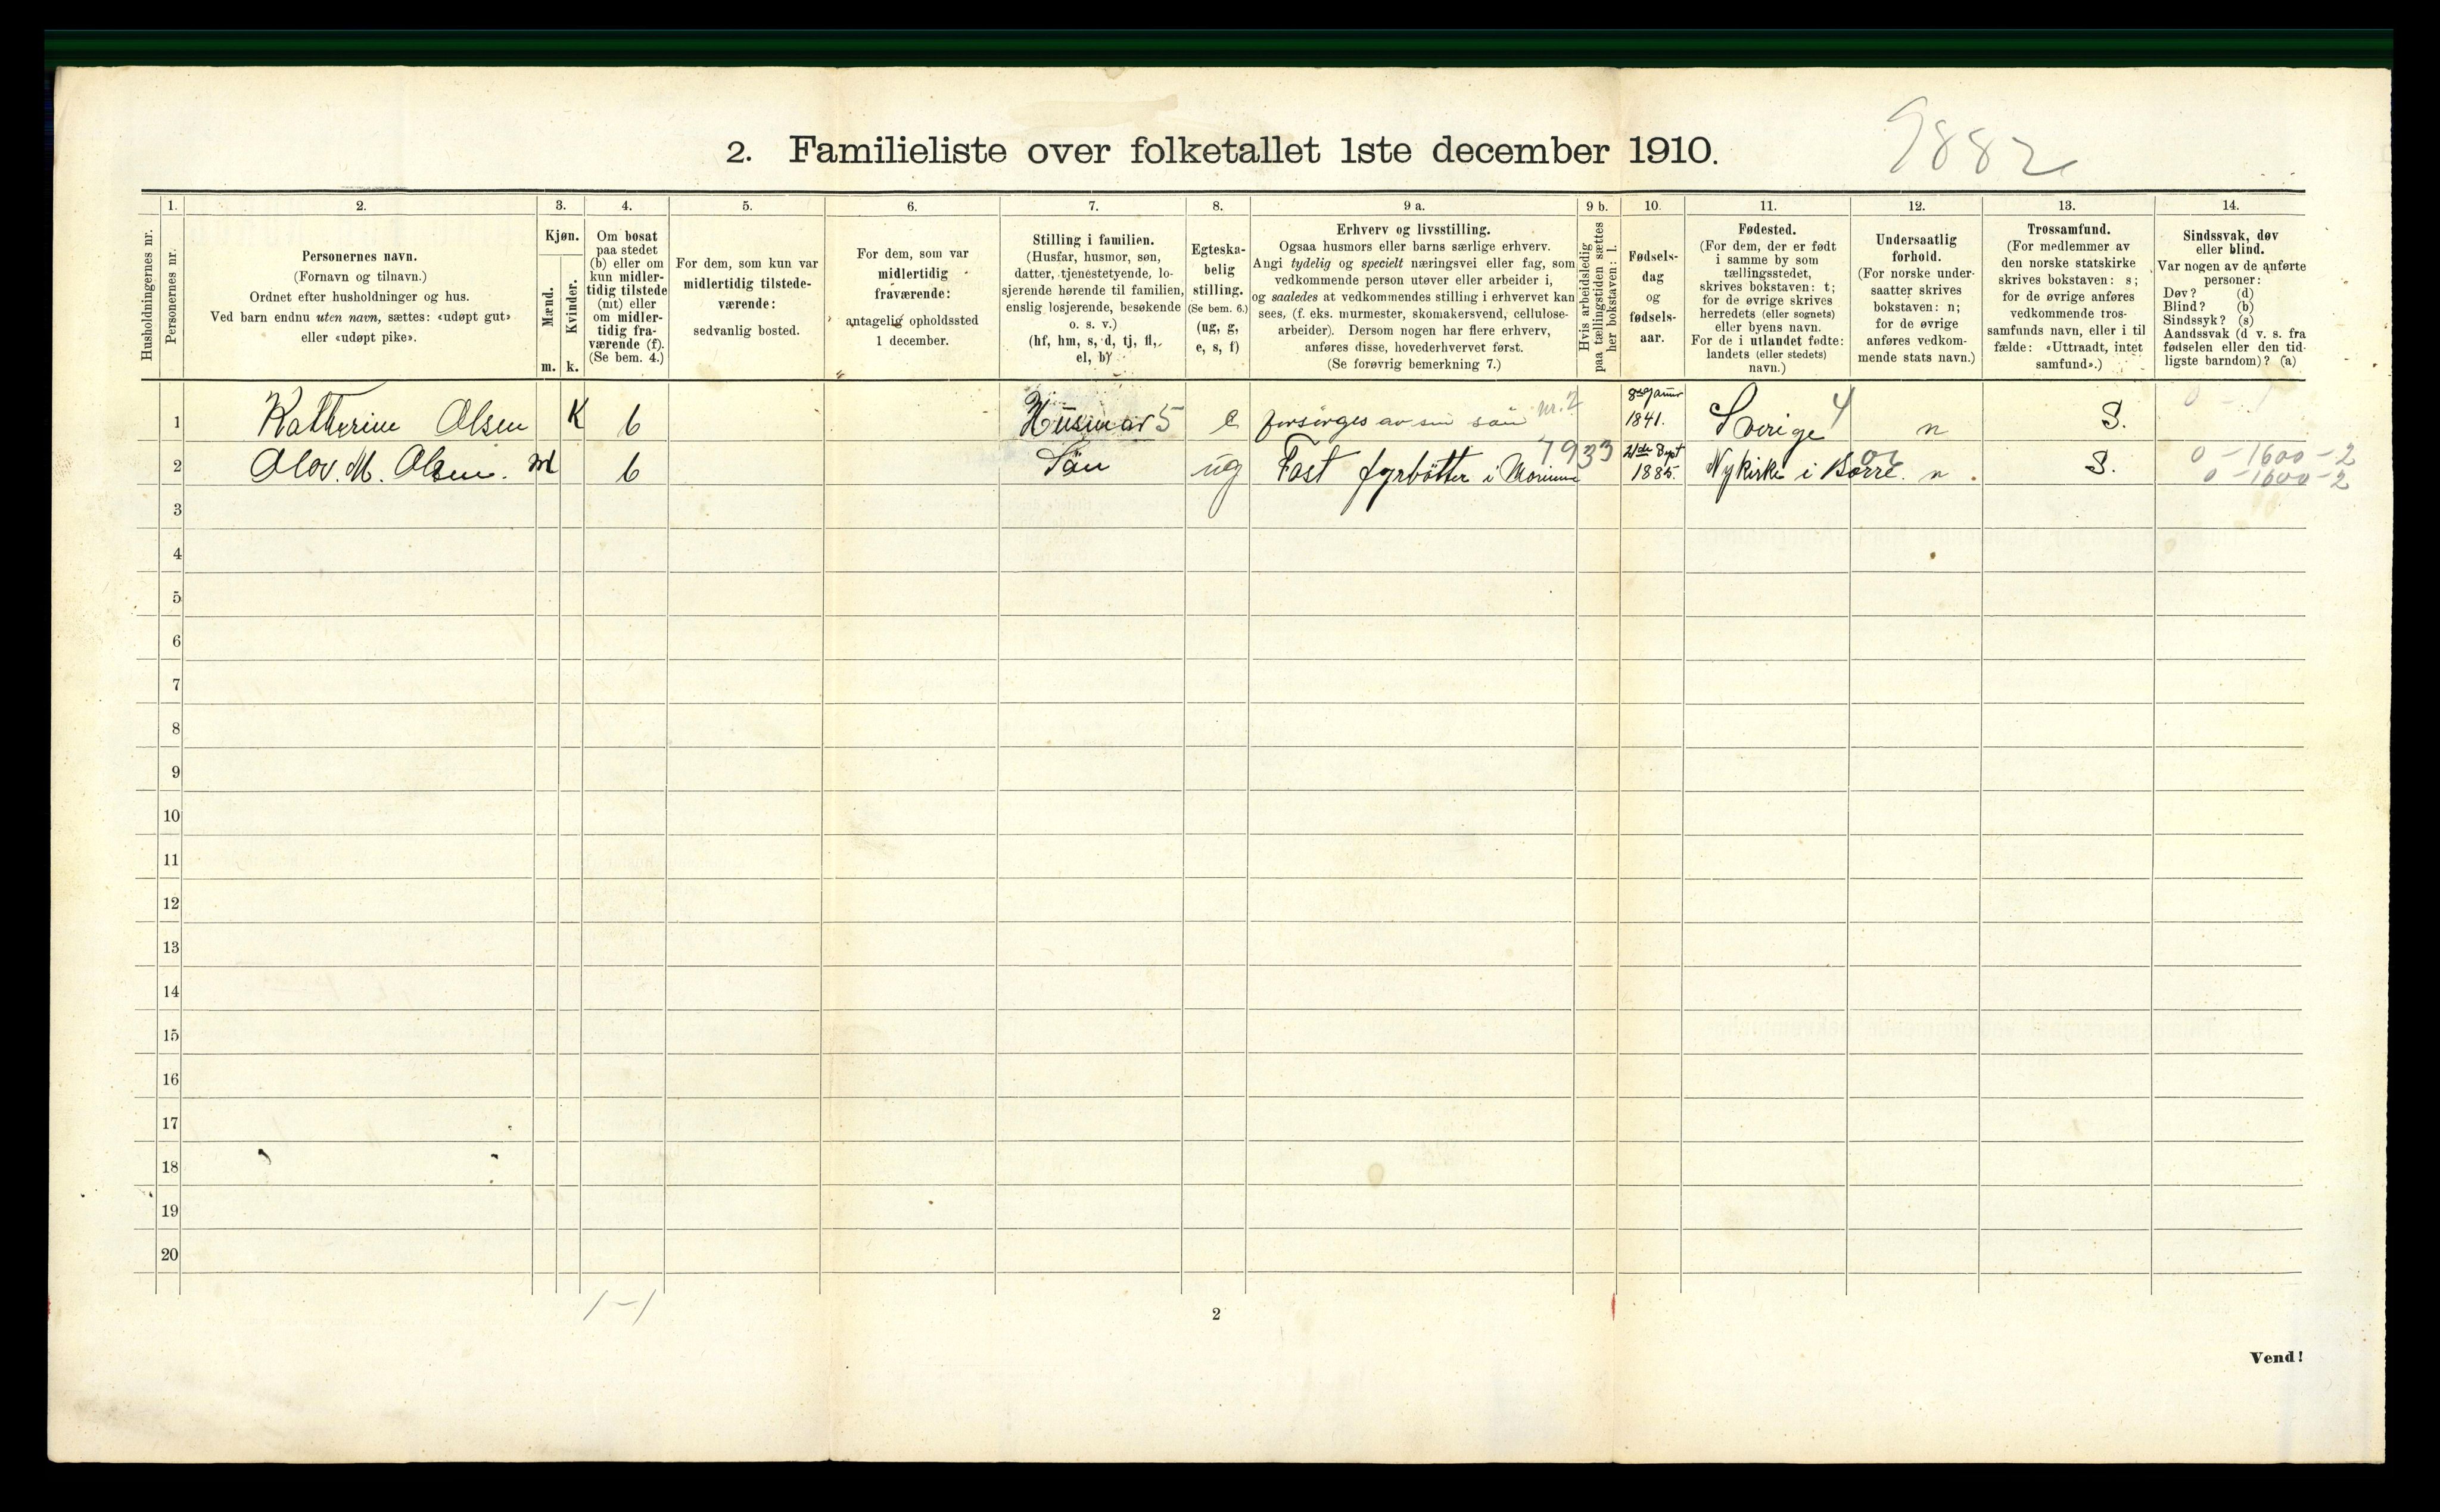 2. Familieliste over folketallet 1ste december 1910.
9882
Husholdningernes nr.
1.
Personernes nr.
2.
Personernes navn.
(Fornavn og tilnavn.)
Ordnet efter husholdninger og hus.
Ved barn endnu uten navn, sættes: «udøpt gut»
eller «udøpt pike».
3.
Kjøn.
Mænd.
Kvinder.
m. k.
4.
Om bosat
paa stedet
(b) eller om
kun midler-
tidig tilstede
(mt) eller
om midler-
tidig fra-
værende (f).
(Se bem. 4.)
5.
For dem, som kun var
midlertidig tilstede-
værende:
sedvanlig bosted.
6.
For dem, som var
midlertidig
fraværende:
antagelig opholdssted
1 december.
7.
Stilling i familien.
(Husfar, husmor, søn,
datter, tjenestetyende, lo-
sjerende hørende til familien,
enslig losjerende, besøkende
o. s. v.)
(hf, hm, s, d, tj, fl,
el, b)
8.
Egteska-
belig
stilling.
(Se bem. 6.)
(ug, g,
e, s, f)
9 a.
Erhverv og livsstilling.
Ogsaa husmors eller barns særlige erhverv.
Angi tydelig og specielt næringsvei eller fag, som
vedkommende person utøver eller arbeider i,
og saaledes at vedkommendes stilling i erhvervet kan
sees, (f. eks. murmester, skomakersvend, cellulose-
arbeider). Dersom nogen har flere erhverv,
anføres disse, hovederhvervet først.
(Se forøvrig bemerkning 7.)
9 b.
Hvis arbeidsledig
paa tællingstiden sættes
her bokstaven: l.
10.
Fødsels-
dag
og
fødsels-
aar.
11.
Fødested.
(For dem, der er født
i samme by som
tællingsstedet,
skrives bokstaven: t;
for de øvrige skrives
herredets (eller sognets)
eller byens navn.
For de i utlandet fødte:
landets (eller stedets)
navn.)
12.
Undersaatlig
forhold.
(For norske under-
saatter skrives
bokstaven: n;
for de øvrige
anføres vedkom-
mende stats navn.)
13.
Trossamfund.
(For medlemmer av
den norske statskirke
skrives bokstaven: s;
for de øvrige anføres
vedkommende tros-
samfunds navn, eller i til
fælde: «Uttraadt, intet
samfund».)
14.
Sindssvak, døv
eller blind.
Var nogen av de anførte
personer:
Døv? (d)
Blind? (b)
Sindssyk? (s)
Aandssvak (d v. s. fra
fødselen eller den tid-
ligste barndom)? (a)
1 Katherine Olsen K b Husmor 5 e forsörges av sin sön nr. 2 1841. Sverige 4 n S.
2 Olov. M. Olsen. M b Sön ug Fast fyrbötter i Marinen 7933 21de Sept 1885. Nykirke i Borre. n. S. 0-1600-2
0-1600-2
3
4
5
6
7
8
9
10
11
12
13
14
15
16
17
18
19
20
1-1
2
Vend!